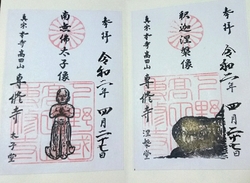 奉拝
令和二年 四月二十七日
釈迦涅槃像
真宗本寺高田山
専修寺
涅槃堂
奉拝
令和二年 四月二十七日
南無佛太子像
真宗本寺高田山
専修寺
太子堂